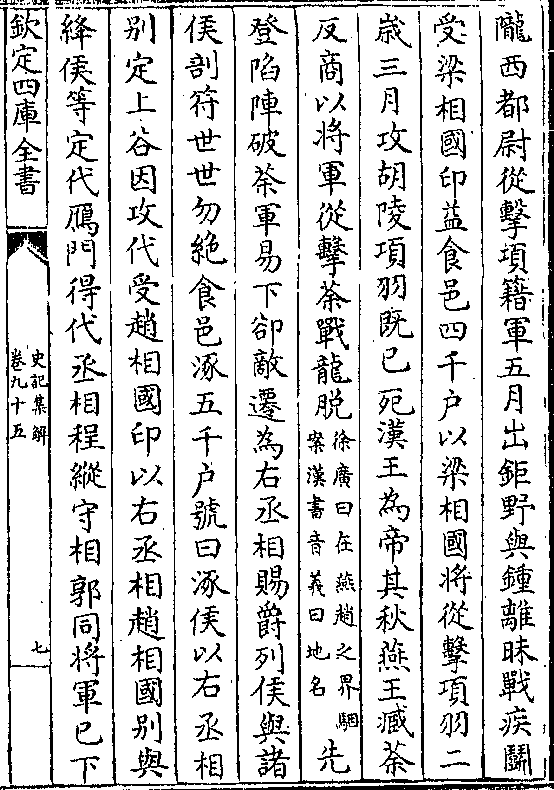 隴西都尉從擊項籍軍五月出鉅野與鍾離昧戰疾鬭
受梁相國印益食邑四千户以梁相國將從擊項羽二
歳三月攻胡陵項羽既已死漢王為帝其秋燕王臧荼
反商以將軍從擊荼戰龍脱徐廣曰在燕趙之界駰案漢書音義曰地名先
登陷陣破荼軍易下卻敵遷為右丞相賜爵列侯與諸
侯剖符世世勿絶食邑涿五千户號曰涿侯以右丞相
别定上谷因攻代受趙相國印以右丞相趙相國别與
絳侯等定代鴈門得代丞相程縱守相郭同將軍已下
欽定四庫全書
史記集解
卷九十五
七